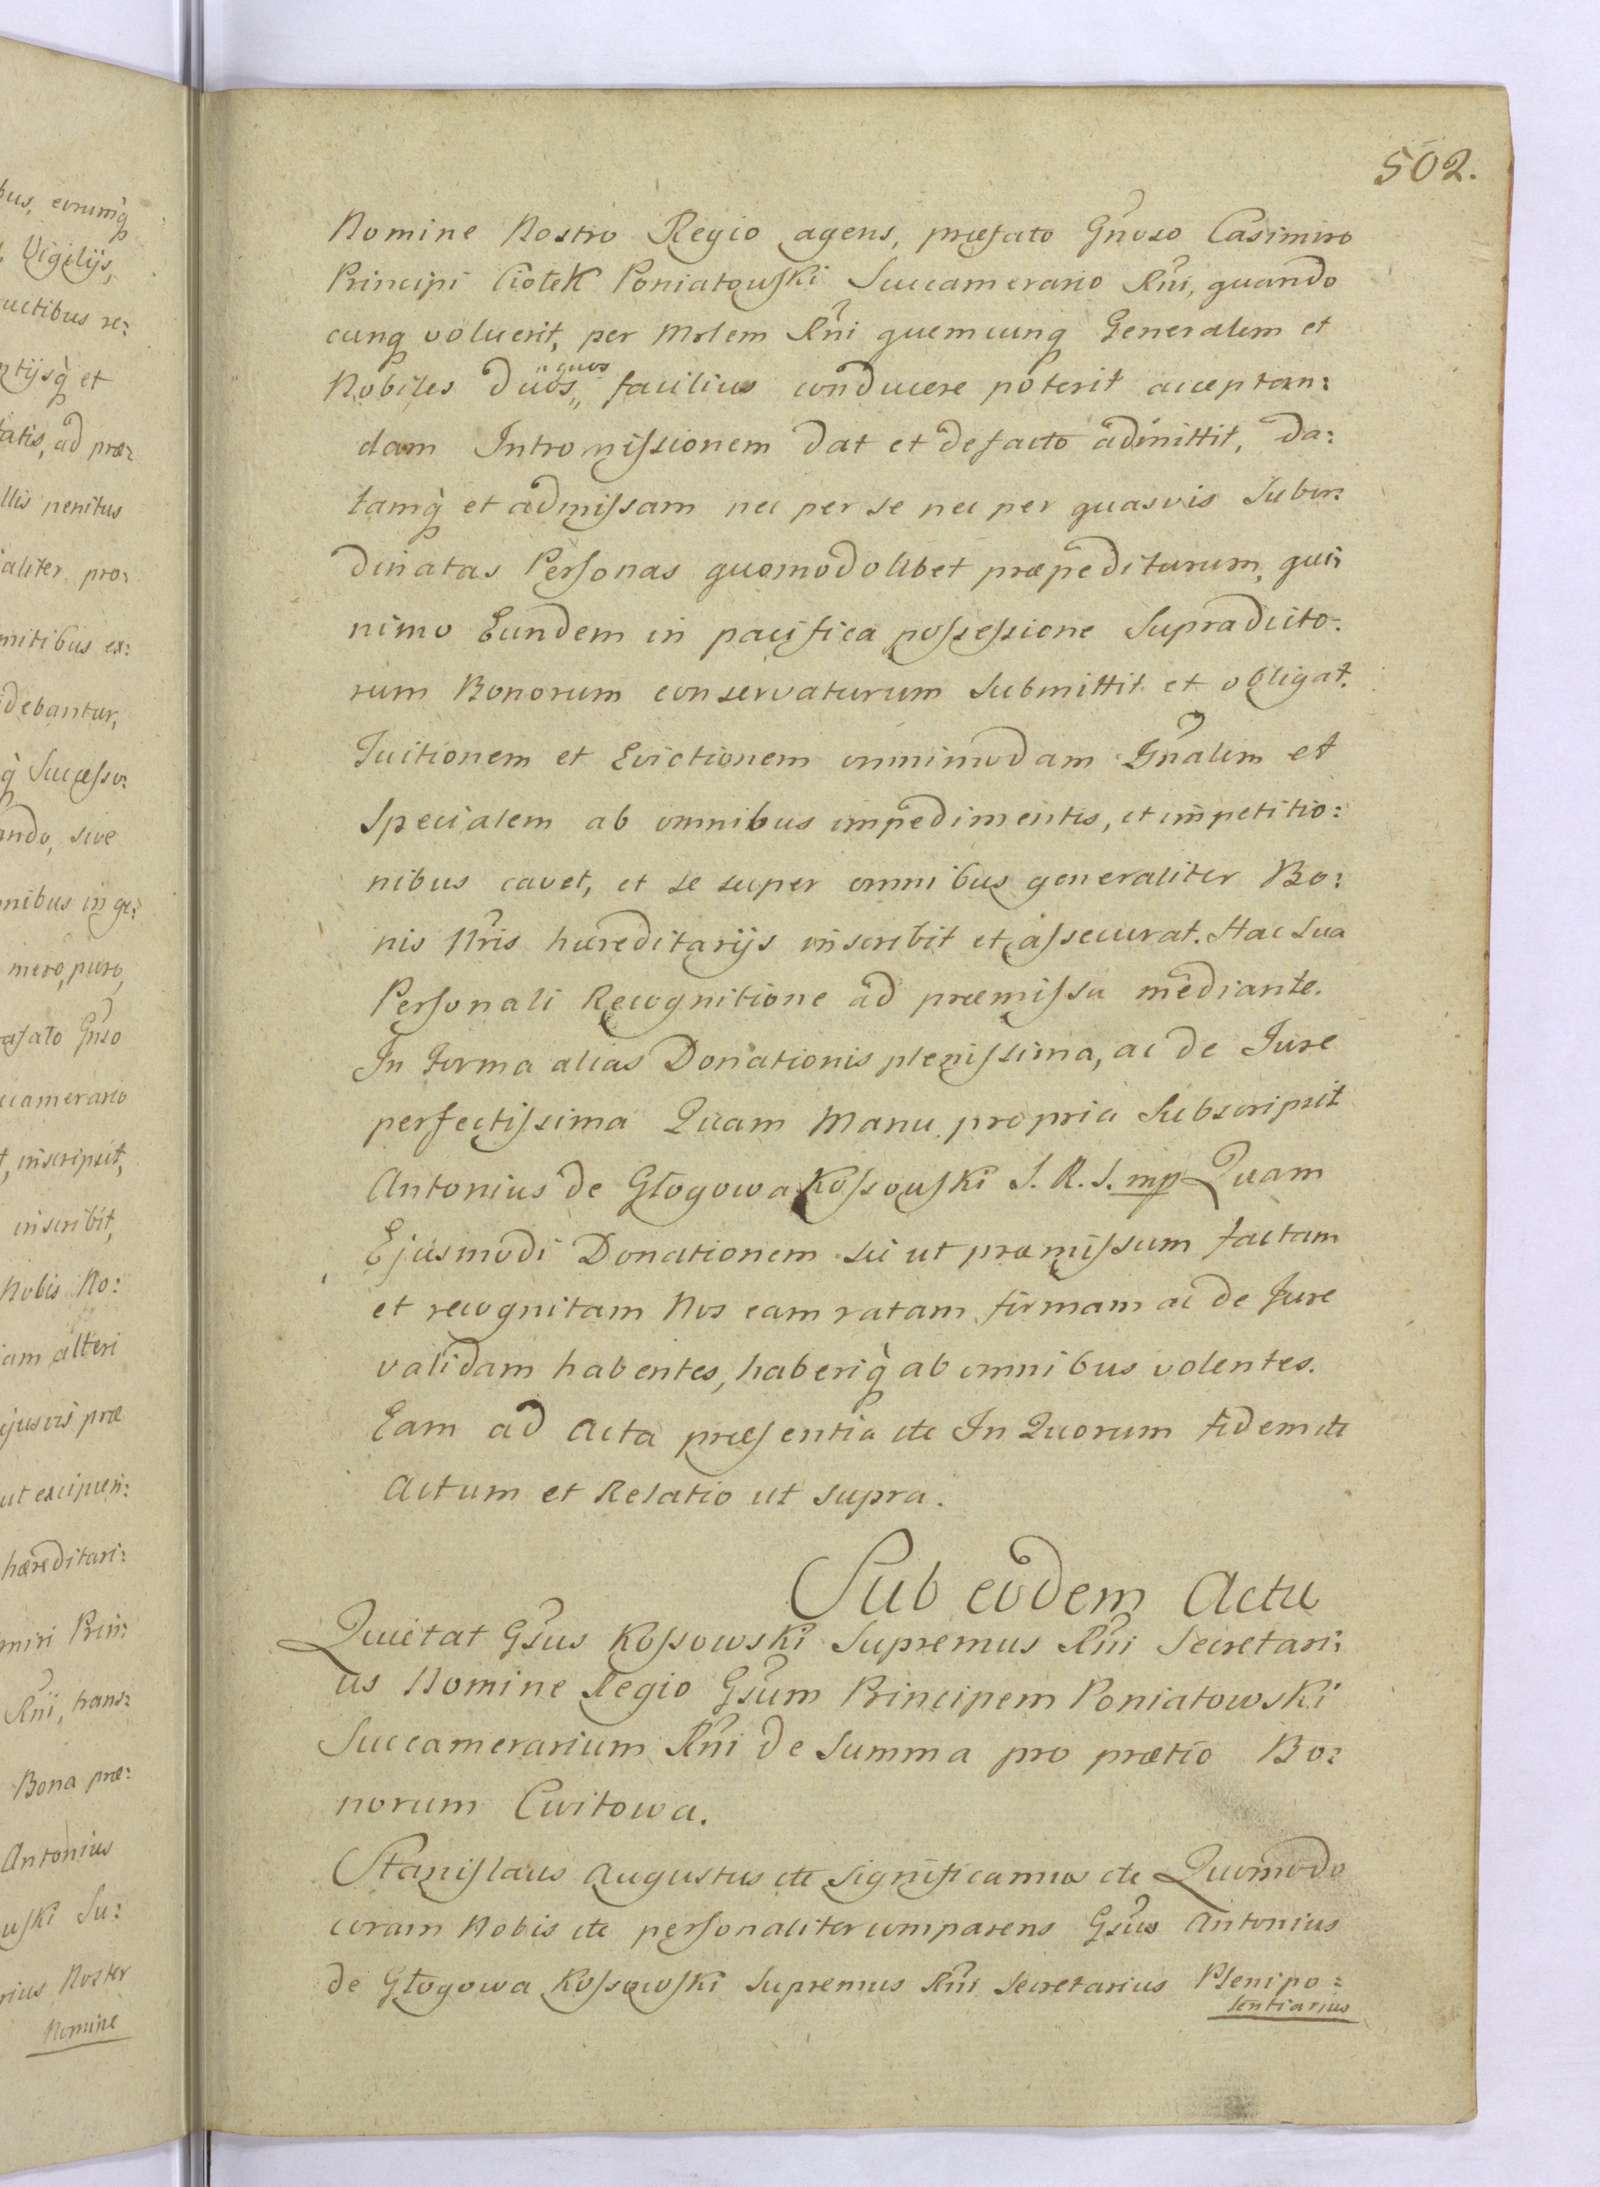 502.
Nomine Nostro Regio agens, præfato Gnoso Casimiro
Principi Ciołek Poniatowski Succamerario Rni, quando
cunq voluerit, per Mrlem Rni quemcunq Generalem et
Nobiles duos,, "quos facilius conducere poterit acceptan:
dam Intromissionem dat et defacto admittit, da:
tamq et admissam nec per se nec per quasvis Subor:
dinatas Personas quomodolibet præpediturum, qui:
nimo Eundem in pacifica possessione Supradicto:
rum Bonorum conservaturum Submittit et obligat.
Tuitionem et Evictionem omnimodam Gnalem et
Specialem ab omnibus impedimentis, et impetitio:
nibus cavet, et se super omnibus generaliter Bo:
nis Nris hæreditarijs inscribit et assecurat. Hac sua
Personali Recognitione ad præmissa mediante.
In forma alias Donationis plenissima, ac de Jure
perfectissima Quam Manu propria Subscripsit
Antonius de Głogowa Kossowski S. R. S. mp Quam
Ejusmodi Donationem sic ut præmissum factam
et recognitam Nos eam ratam firmam ac de Jure
validam habentes, haberiq ab omnibus volentes.
Eam ad Acta præsentia etc In Quorum fidem etc
Actum et Relatio ut supra.
Sub eodem Actu
Quietat Gsus Kossowski Supremus Rni Secretari:
us Nomine Regio Gsum Principem Poniatowski
Succamerarium Rni de Summa pro prætio Bo:
norum Cwitowa.
Stanislaus Augustus etc Significamus etc Quomodo
coram Nobis etc personaliter comparens Gsus Antonius
de Głogowa Kossowski Supremus Rni Secretarius Plenipo:
tentiarius